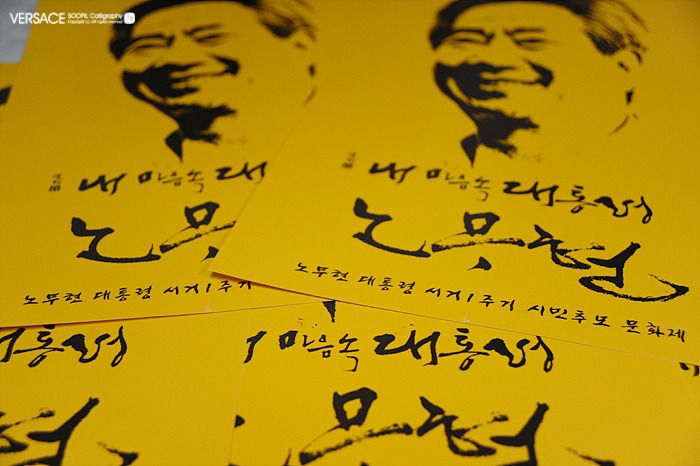 VERSACE SOOPIL Calligraphy
Copyright (c) All rights reserved
내 마음속 대
노무
내 마음속 대통령
노무현
노무현 대통령 서거 1주기
노무현 대통령 서거 1주기 시민추모 문화제
대통령
마음속 대통령
무현